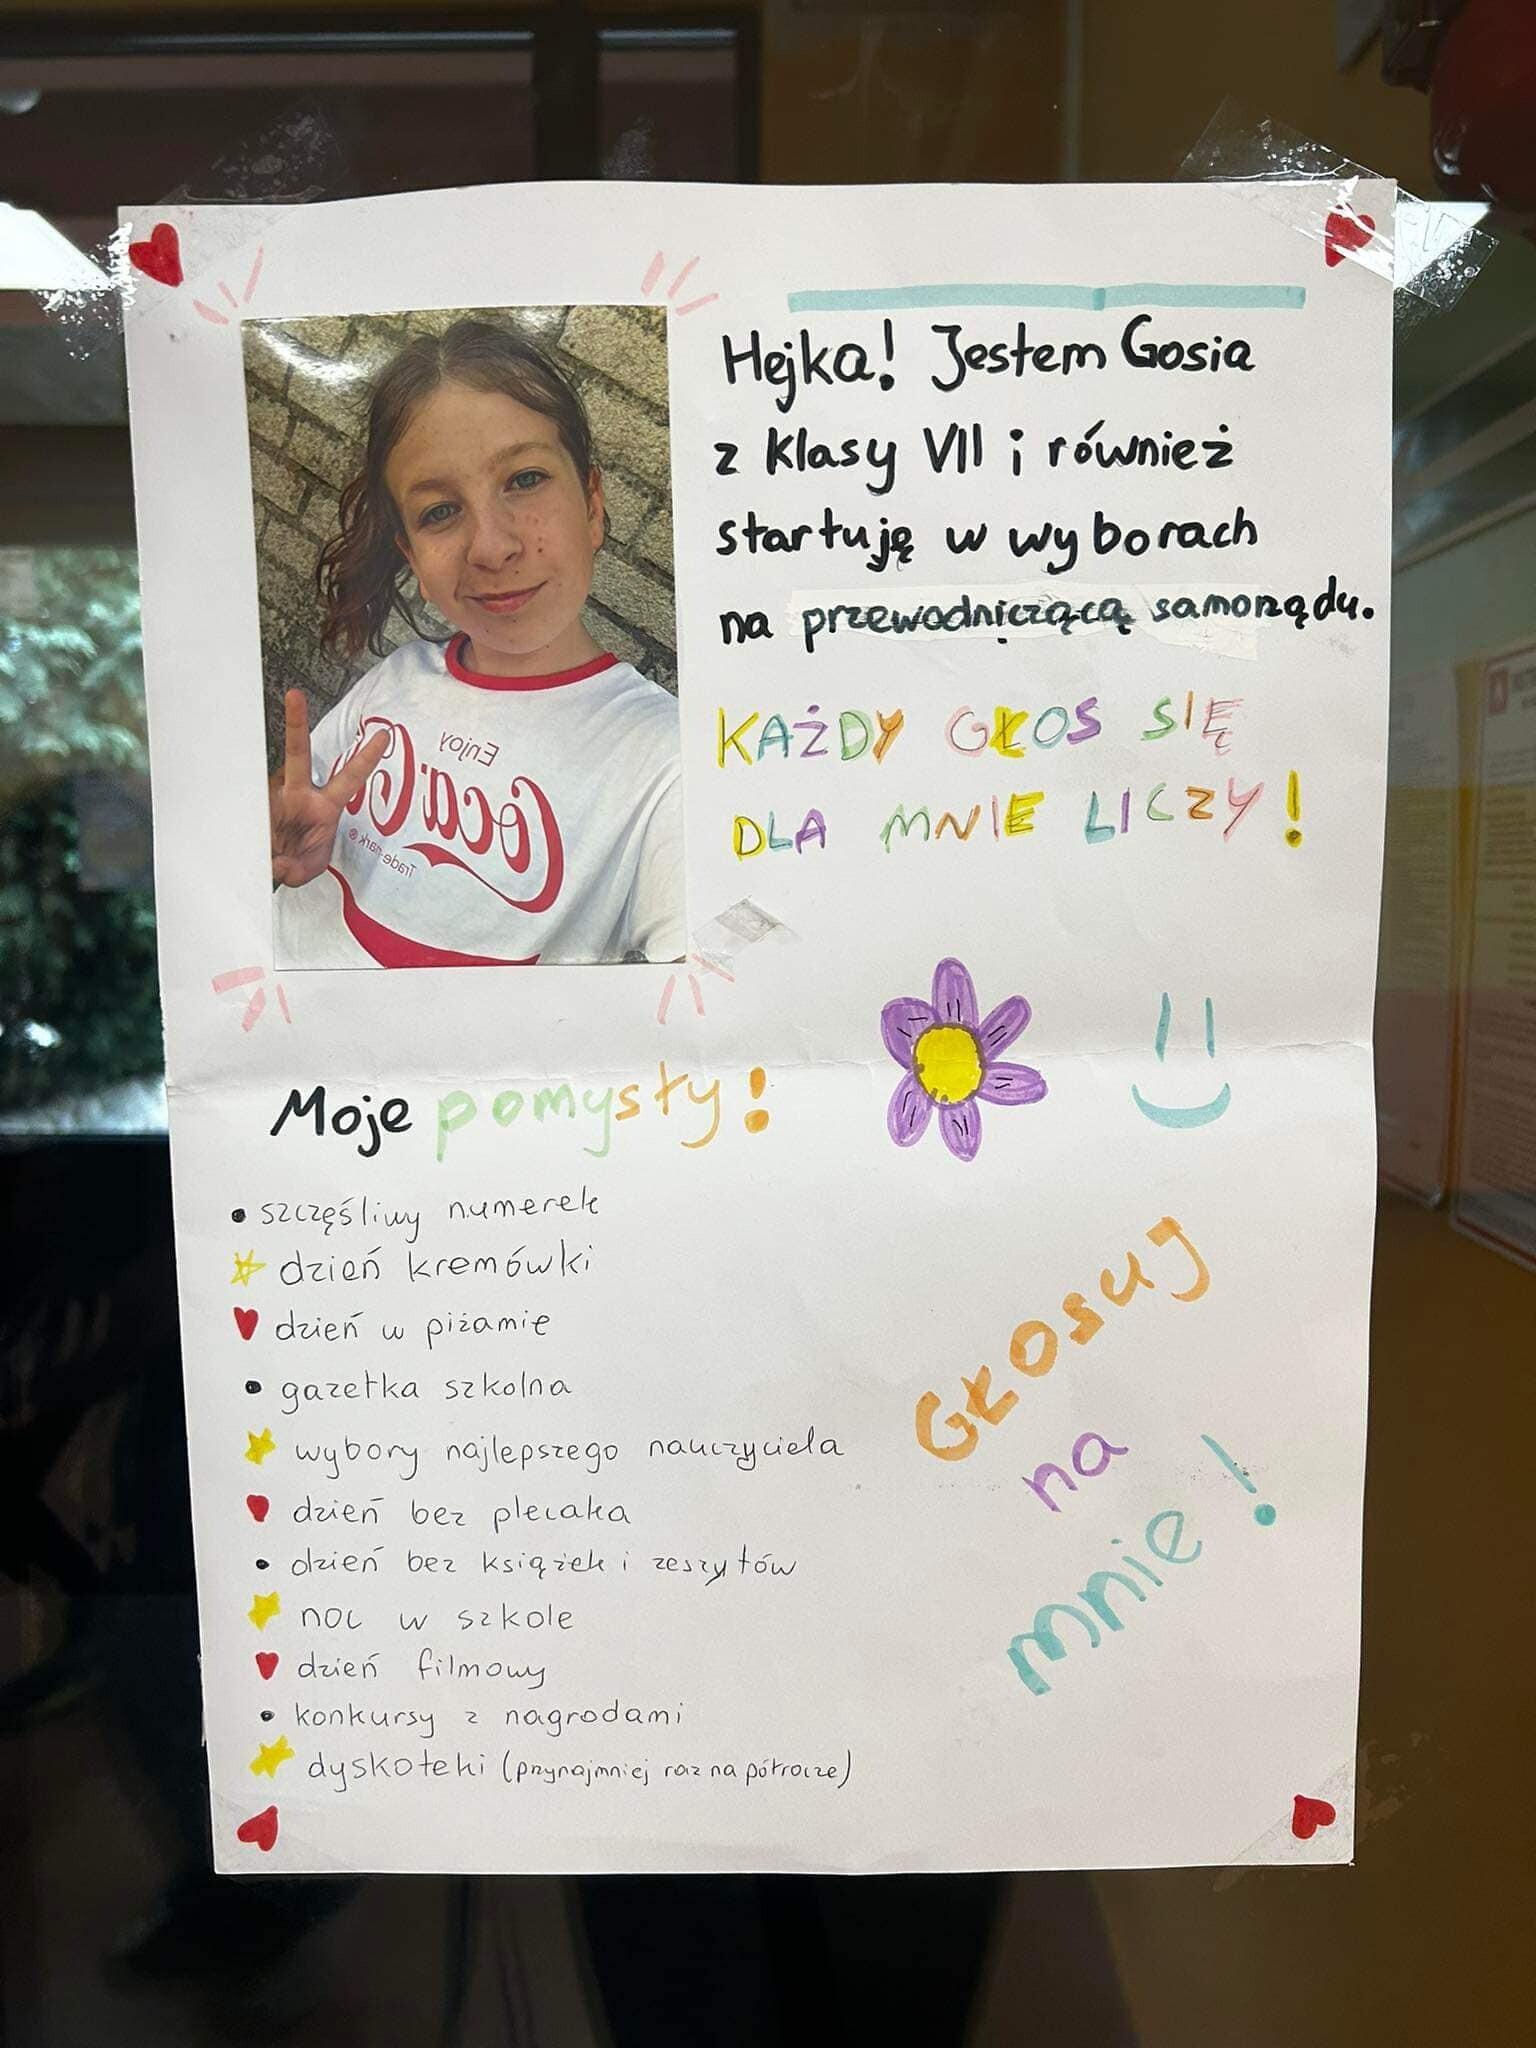 Hejka! Jestem Gosia
z klasy VII i również
startuję w wyborach
na przewodniczącą samorządu.
KAŻDY GŁOS SIĘ
DLA MNIE LICZY!
Enjoy
Coca-Cola
Trade-mark ®
Moje pomysły!
• szczęśliwy numerek
dzień kremówki
dzień w piżamie
• gazetka szkolna
wybory najlepszego nauczyciela
dzień bez plecaka
• dzień bez książek i zeszytów
noc w szkole
dzień filmowy
• konkursy z nagrodami
dyskoteki (przynajmniej raz na półrocze)
Głosuj
na
mnie!